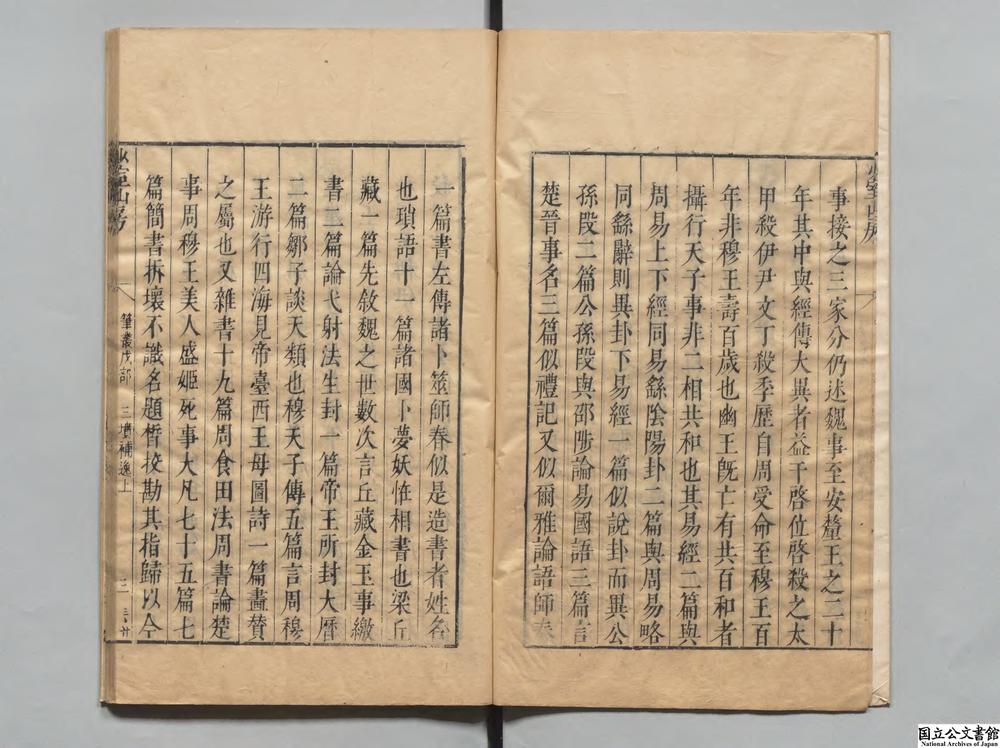 事接之三家分仍述魏事至安釐王之二十
年其中與經傳大異者益干啓位啓殺之太
甲殺伊尹文丁殺季歷自周受命至穆王百
年非穆王壽百歲也幽王旣亡有共百和者
攝行天子事非二相共和也其易經二篇與
周易上下經同易繇陰陽卦二篇與周易略
同繇辭則異卦下易經一篇似說卦而異公
孫段二篇公孫段與邵陟論易國語三篇言
楚晉事名三篇似禮記又似爾雅論語師春
一篇書左傳諸卜筮師春似是造書者姓名
也瑣語十一篇諸國卜夢妖怪相書也梁丘
藏一篇先敘魏之世數次言丘藏金玉事繳
書二篇論弋射法生封一篇帝王所封大曆
二篇鄒子談天類也穆天子傳五篇言周穆
王游行四海見帝臺西王母圖詩一篇畫贊
之屬也又雜書十九篇周食田法周書論楚
事周穆王美人盛姬死事大凡七十五篇七
篇簡書拆壞不識名題晳挍勘其指歸以今
筆叢戊部 三墳補逸上 三
少室山房
国立公文書館
National Archives of Japan